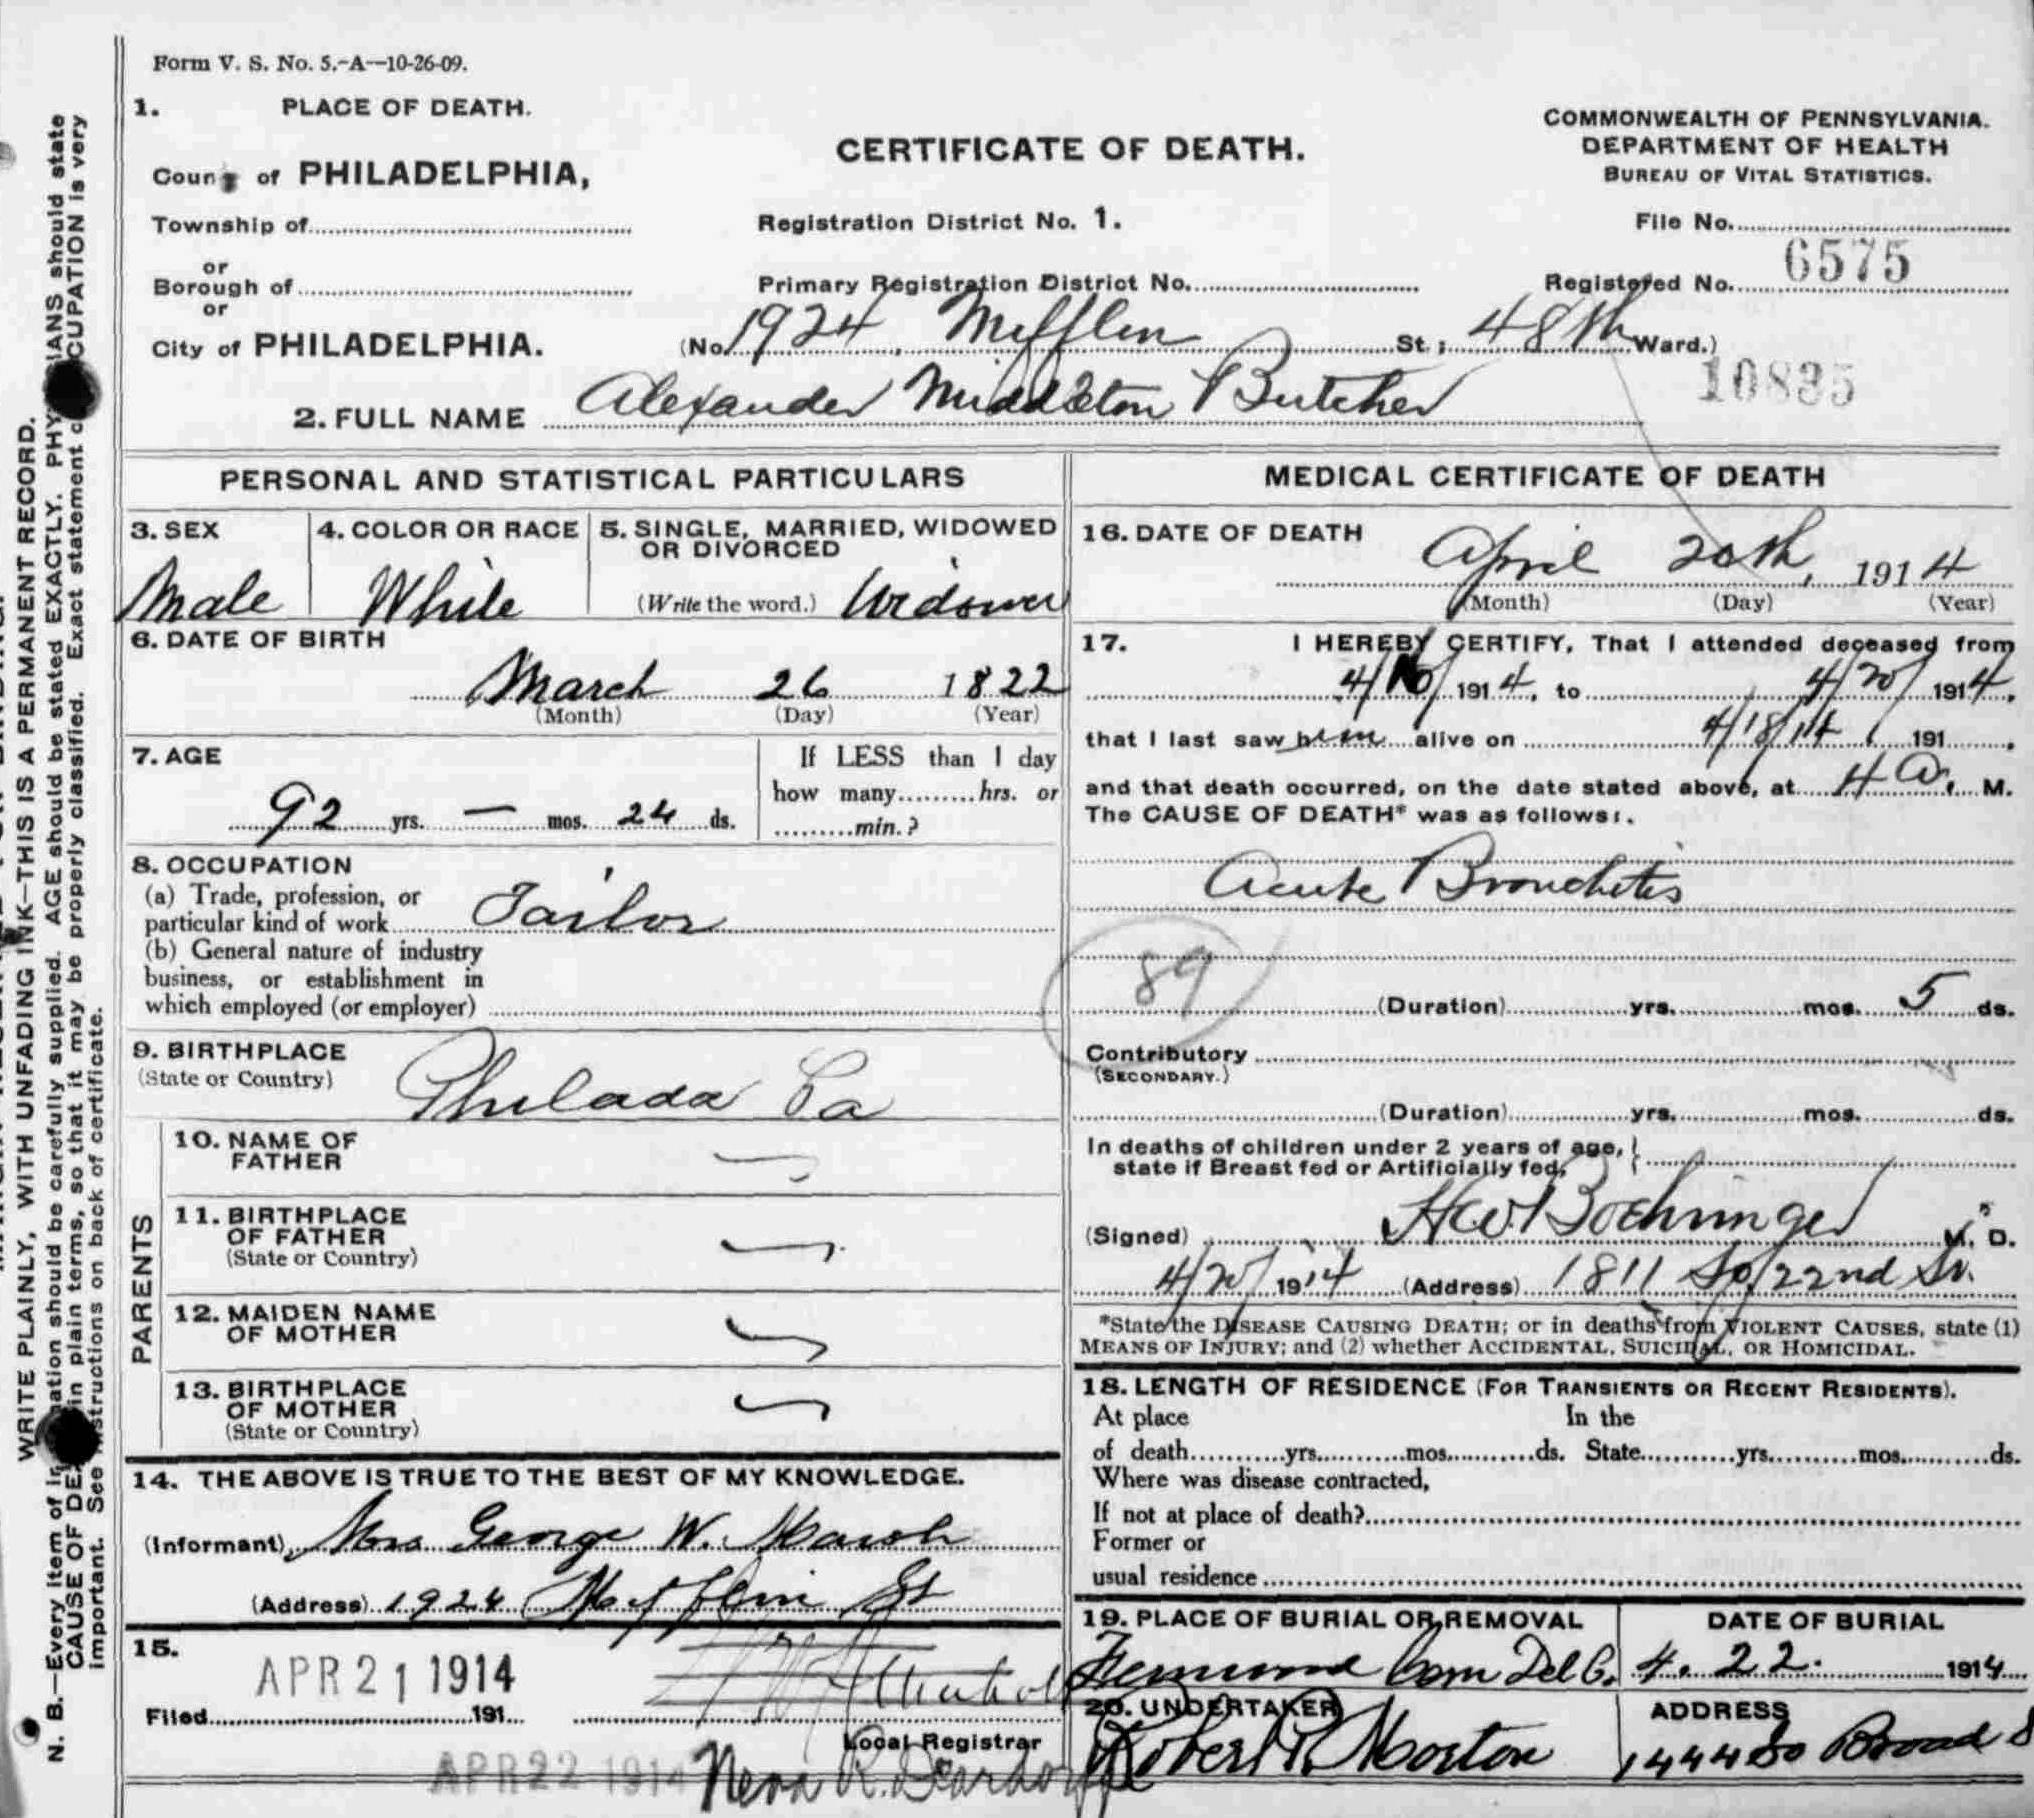 Form V. S. No. 5.-A—10-26-09.
1. PLACE OF DEATH.
County of PHILADELPHIA,
Township of
or
Borough of
or
City of PHILADELPHIA.
CERTIFICATE OF DEATH.
COMMONWEALTH OF PENNSYLVANIA.
DEPARTMENT OF HEALTH
BUREAU OF VITAL STATISTICS.
Registration District No. 1.
File No.
Primary Registration District No.
Registered No. 6575
(No. 1924, Mifflin St; 48th Ward.)
10835
2. FULL NAME Alexander Middleton Butcher
PERSONAL AND STATISTICAL PARTICULARS
3. SEX
Male
4. COLOR OR RACE
White
5. SINGLE, MARRIED, WIDOWED
OR DIVORCED
(Write the word.) Widower
6. DATE OF BIRTH
March 26 1822
(Month) (Day) (Year)
7. AGE
92 yrs. — mos. 24 ds.
If LESS than 1 day
how many hrs. or
min.?
8. OCCUPATION
(a) Trade, profession, or
particular kind of work Tailor
(b) General nature of industry
business, or establishment in
which employed (or employer)
9. BIRTHPLACE
(State or Country)
Philada Pa
PARENTS
10. NAME OF
FATHER
11. BIRTHPLACE
OF FATHER
(State or Country)
12. MAIDEN NAME
OF MOTHER
13. BIRTHPLACE
OF MOTHER
(State or Country)
14. THE ABOVE IS TRUE TO THE BEST OF MY KNOWLEDGE.
(Informant) Mrs George W. Marsh
(Address) 1924 Mifflin St
15.
APR 21 1914
Filed 191
Local Registrar
APR 22 1914 Neva R. Deardorff
MEDICAL CERTIFICATE OF DEATH
16. DATE OF DEATH
April 20th, 1914
(Month) (Day) (Year)
17. I HEREBY CERTIFY, That I attended deceased from
4/16/ 1914, to 4/20/ 1914,
that I last saw him alive on 4/18/14, 191 .
and that death occurred, on the date stated above, at 4 a. M.
The CAUSE OF DEATH* was as follows:.
Acute Bronchitis
89
(Duration) yrs. mos. 5 ds.
Contributory
(SECONDARY.)
(Duration) yrs. mos. ds.
In deaths of children under 2 years of age,
state if Breast fed or Artificially fed,
(Signed) H W Boehringer M. D.
4/20/ 1914 (Address) 1811 So 22nd St.
*State the DISEASE CAUSING DEATH; or in deaths from VIOLENT CAUSES, state (1)
MEANS OF INJURY; and (2) whether ACCIDENTAL, SUICIDAL, OR HOMICIDAL.
18. LENGTH OF RESIDENCE (FOR TRANSIENTS OR RECENT RESIDENTS).
At place In the
of death yrs. mos. ds. State yrs. mos. ds.
Where was disease contracted,
If not at place of death?
Former or
usual residence
19. PLACE OF BURIAL OR REMOVAL
Fernwood Cem Del Co.
DATE OF BURIAL
4. 22. 1914
20. UNDERTAKER
Robert R. Morton
ADDRESS
1444 So Broad S
WRITE PLAINLY, WITH UNFADING INK—THIS IS A PERMANENT RECORD.
N. B.—Every item of information should be carefully supplied. AGE should be stated EXACTLY. PHYSICIANS should state
CAUSE OF DEATH in plain terms, so that it may be properly classified. Exact statement of OCCUPATION is very
important. See instructions on back of certificate.